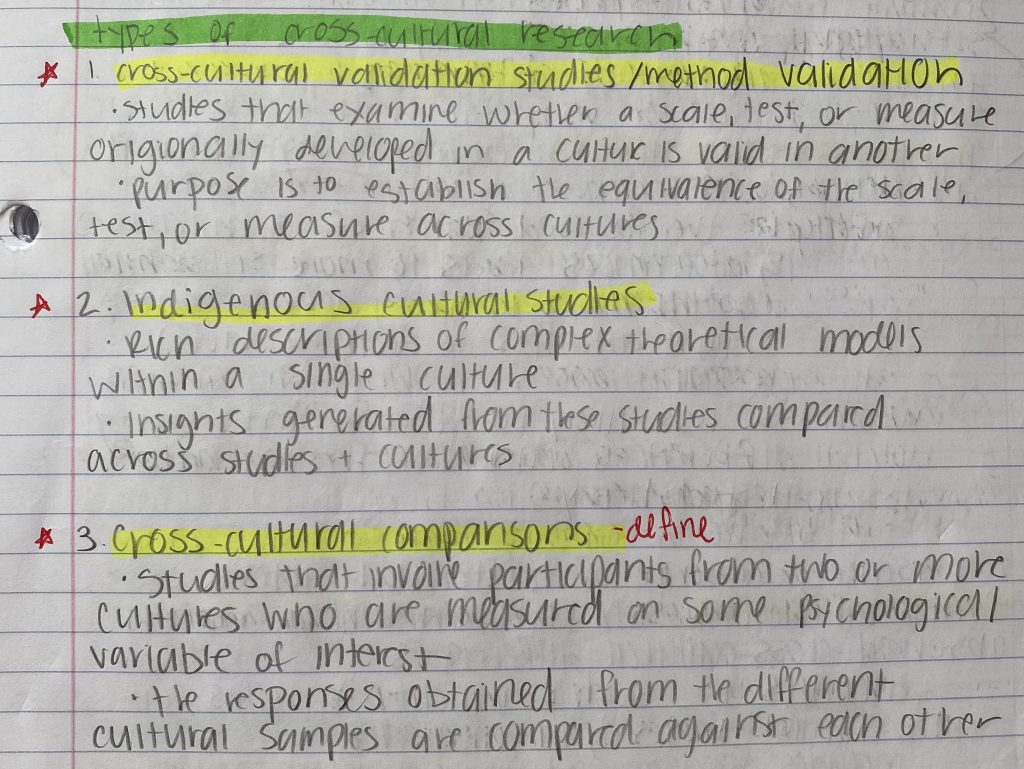 types of cross-cultural research
1. cross-cultural validation studies/method validation
· studies that examine whether a scale, test, or measure
origionally developed in a culture is valid in another
· purpose is to establish the equivalence of the scale,
test, or measure across cultures
2. Indigenous cultural studies
· Rich descriptions of complex theoretical models
within a single culture
· Insights generated from these studies compared
across studies + cultures
3. cross-cultural comparisons -define
· studies that involve participants from two or more
cultures who are measured on some psychological
variable of interest
· the responses obtained from the different
cultural samples are compared against each other